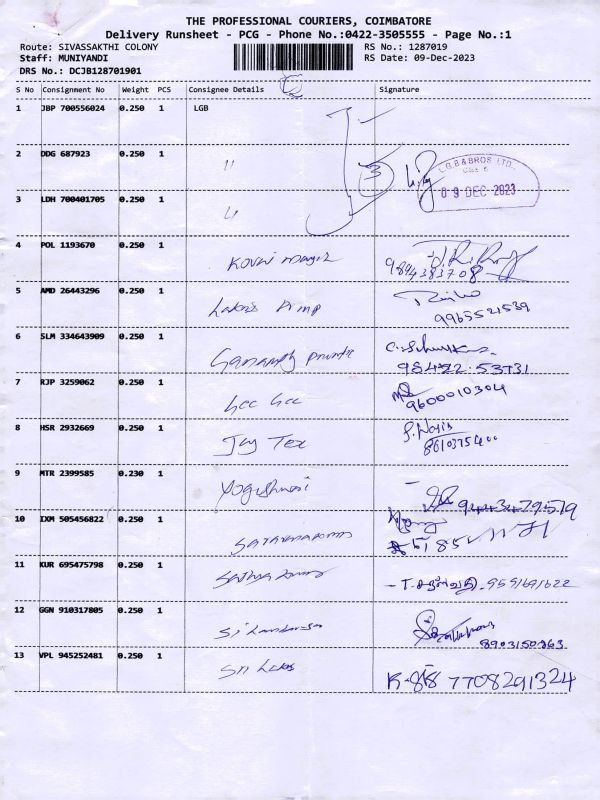 THE PROFESSIONAL COURIERS, COIMBATORE
Delivery Runsheet - PCG - Phone No.:0422-3505555 - Page No.:1
Route: SIVASSAKTHI COLONY RS No.: 1287019
Staff: MUNIYANDI RS Date: 09-Dec-2023
DRS No.: DCJB128701901
S No Consignment No Weight PCS Consignee Details Signature
1 JBP 700556024 0.250 1 LGB
2 DDG 687923 0.250 1 "
3
L.G.B & BROS. LTD.
09 DEC 2023
3 LDH 700401705 0.250 1 "
4 POL 1193670 0.250 1 Kovai
9894383708
5 AMD 26443296 0.250 1
9965521539
6 SLM 334643909 0.250 1
98422.53731
7 RJP 3259062 0.250 1 Gee Gee
9600010304
8 HSR 2932669 0.250 1 Jay Tex
8610375400
9 MTR 2399585 0.230 1 Yogeshwari
9443479579
10 IXM 505456822 0.250 1
11 KUR 695475798 0.250 1 Sathya 9591691622
12 GGN 910317805 0.250 1
8903150963
13 VPL 945252481 0.250 1 Sri
7708291324